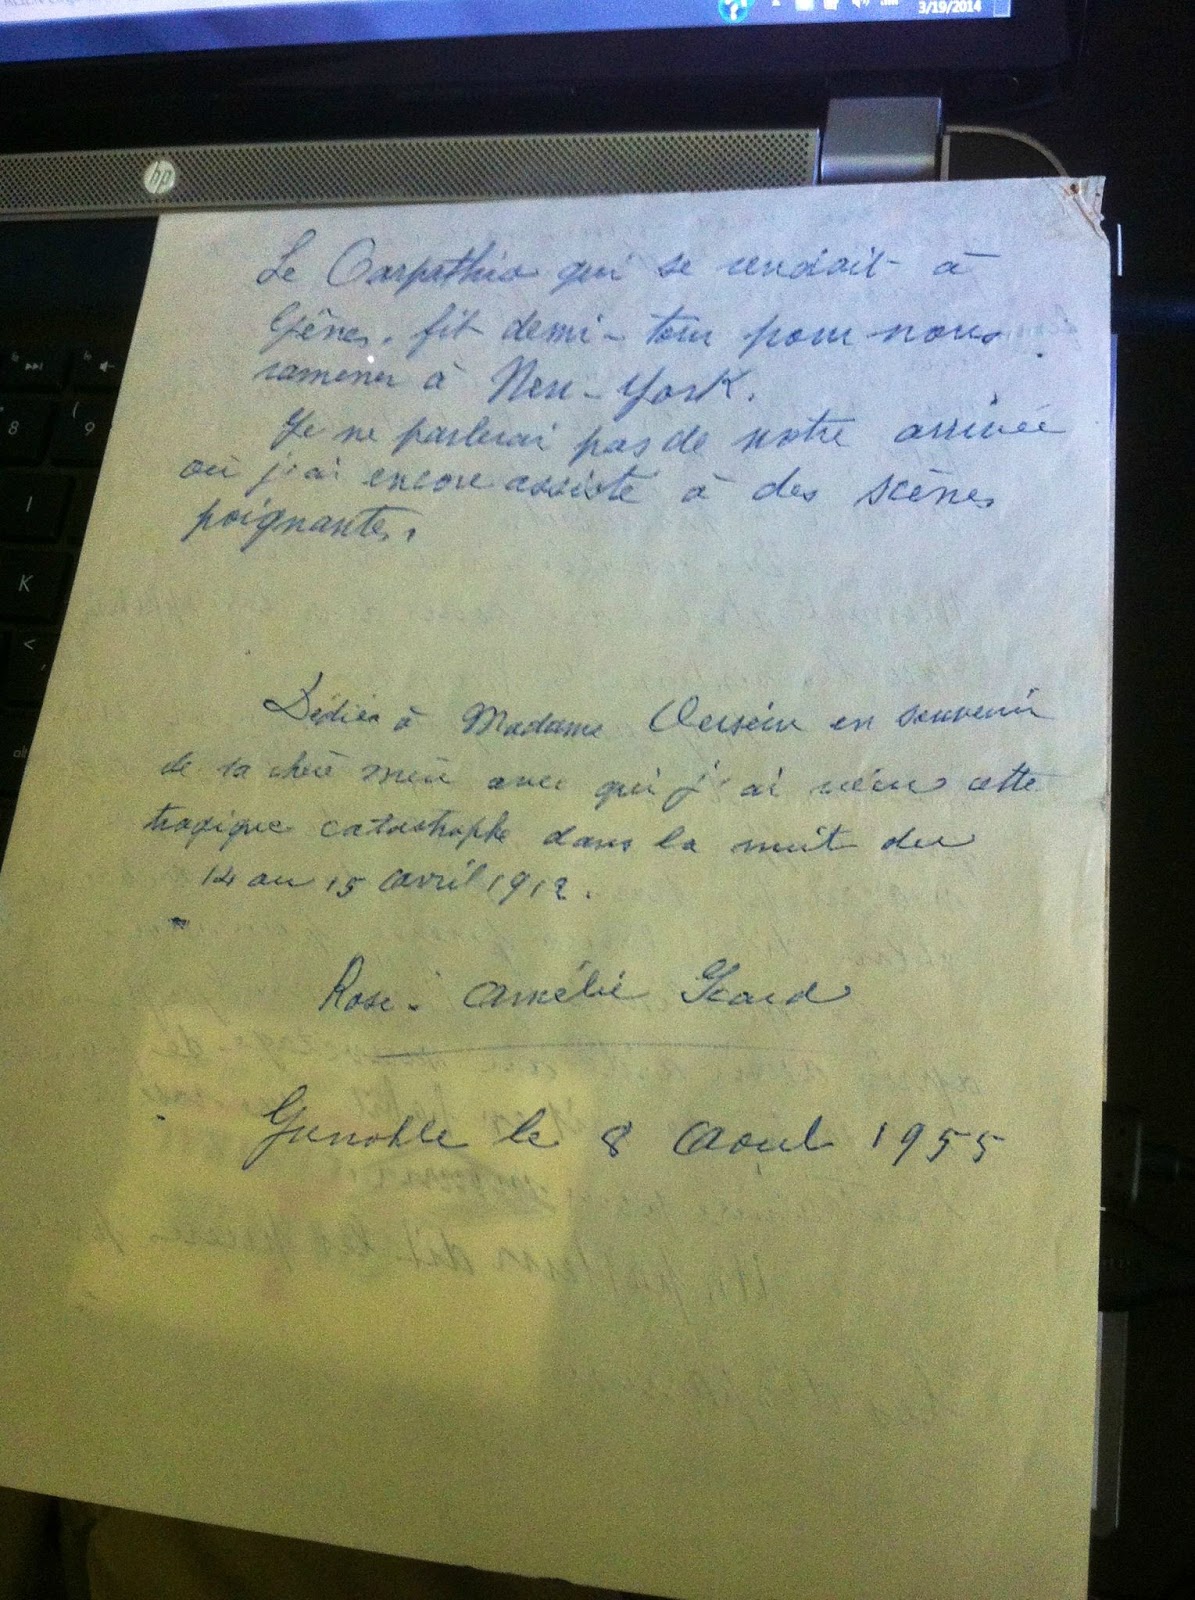 3/19/2014
hp
Le Carpathia qui se rendait à
Gênes, fit demi-tour pour nous
ramener à New-York.
Je ne parlerai pas de notre arrivée
où j'ai encore assisté à des scènes
poignantes.
Dédiée à Madame en souvenir
de sa chère mère avec qui j'ai vécu cette
tragique catastrophe dans la nuit du
14 au 15 avril 1912.
Rose-Amélie Icard
Grenoble le 8 Août 1955
8
9
I
K
<
,